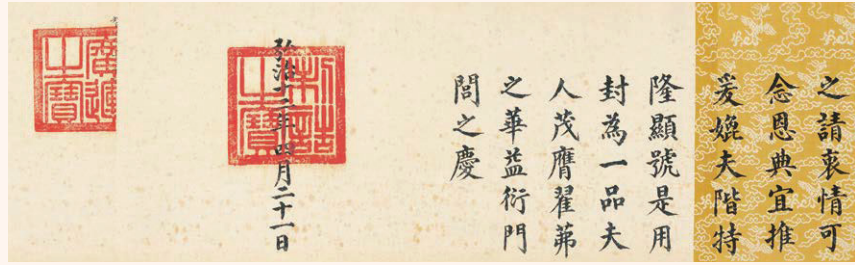 之請衷情可
念恩典宜推
爰媲夫階特
隆顯號是用
封為一品夫
人茂膺翟茀
之華益衍門
閭之慶
弘治十二年四月二十一日
制誥之寶
廣運之寶